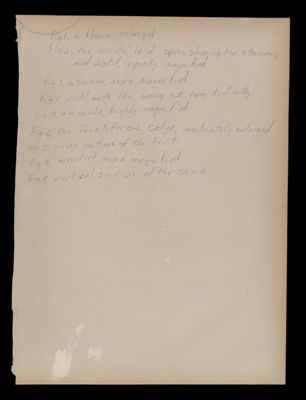 Fig 1. a flower, enlarged
Fig 2, the corolla laid open showing the stamens
and Pistil, equally magnified
Fig 3. a stamen, more magnified.
Fig 4. pistil with the ovary cut longitudinally
Fig 5. an ovule, highly magnified.
Fig 6. the fructiferous calyx, moderately enlarged
Fig 7. cross section of the fruit
Fig 8. a nutlet more magnified
Fig 9. vertical section of the same